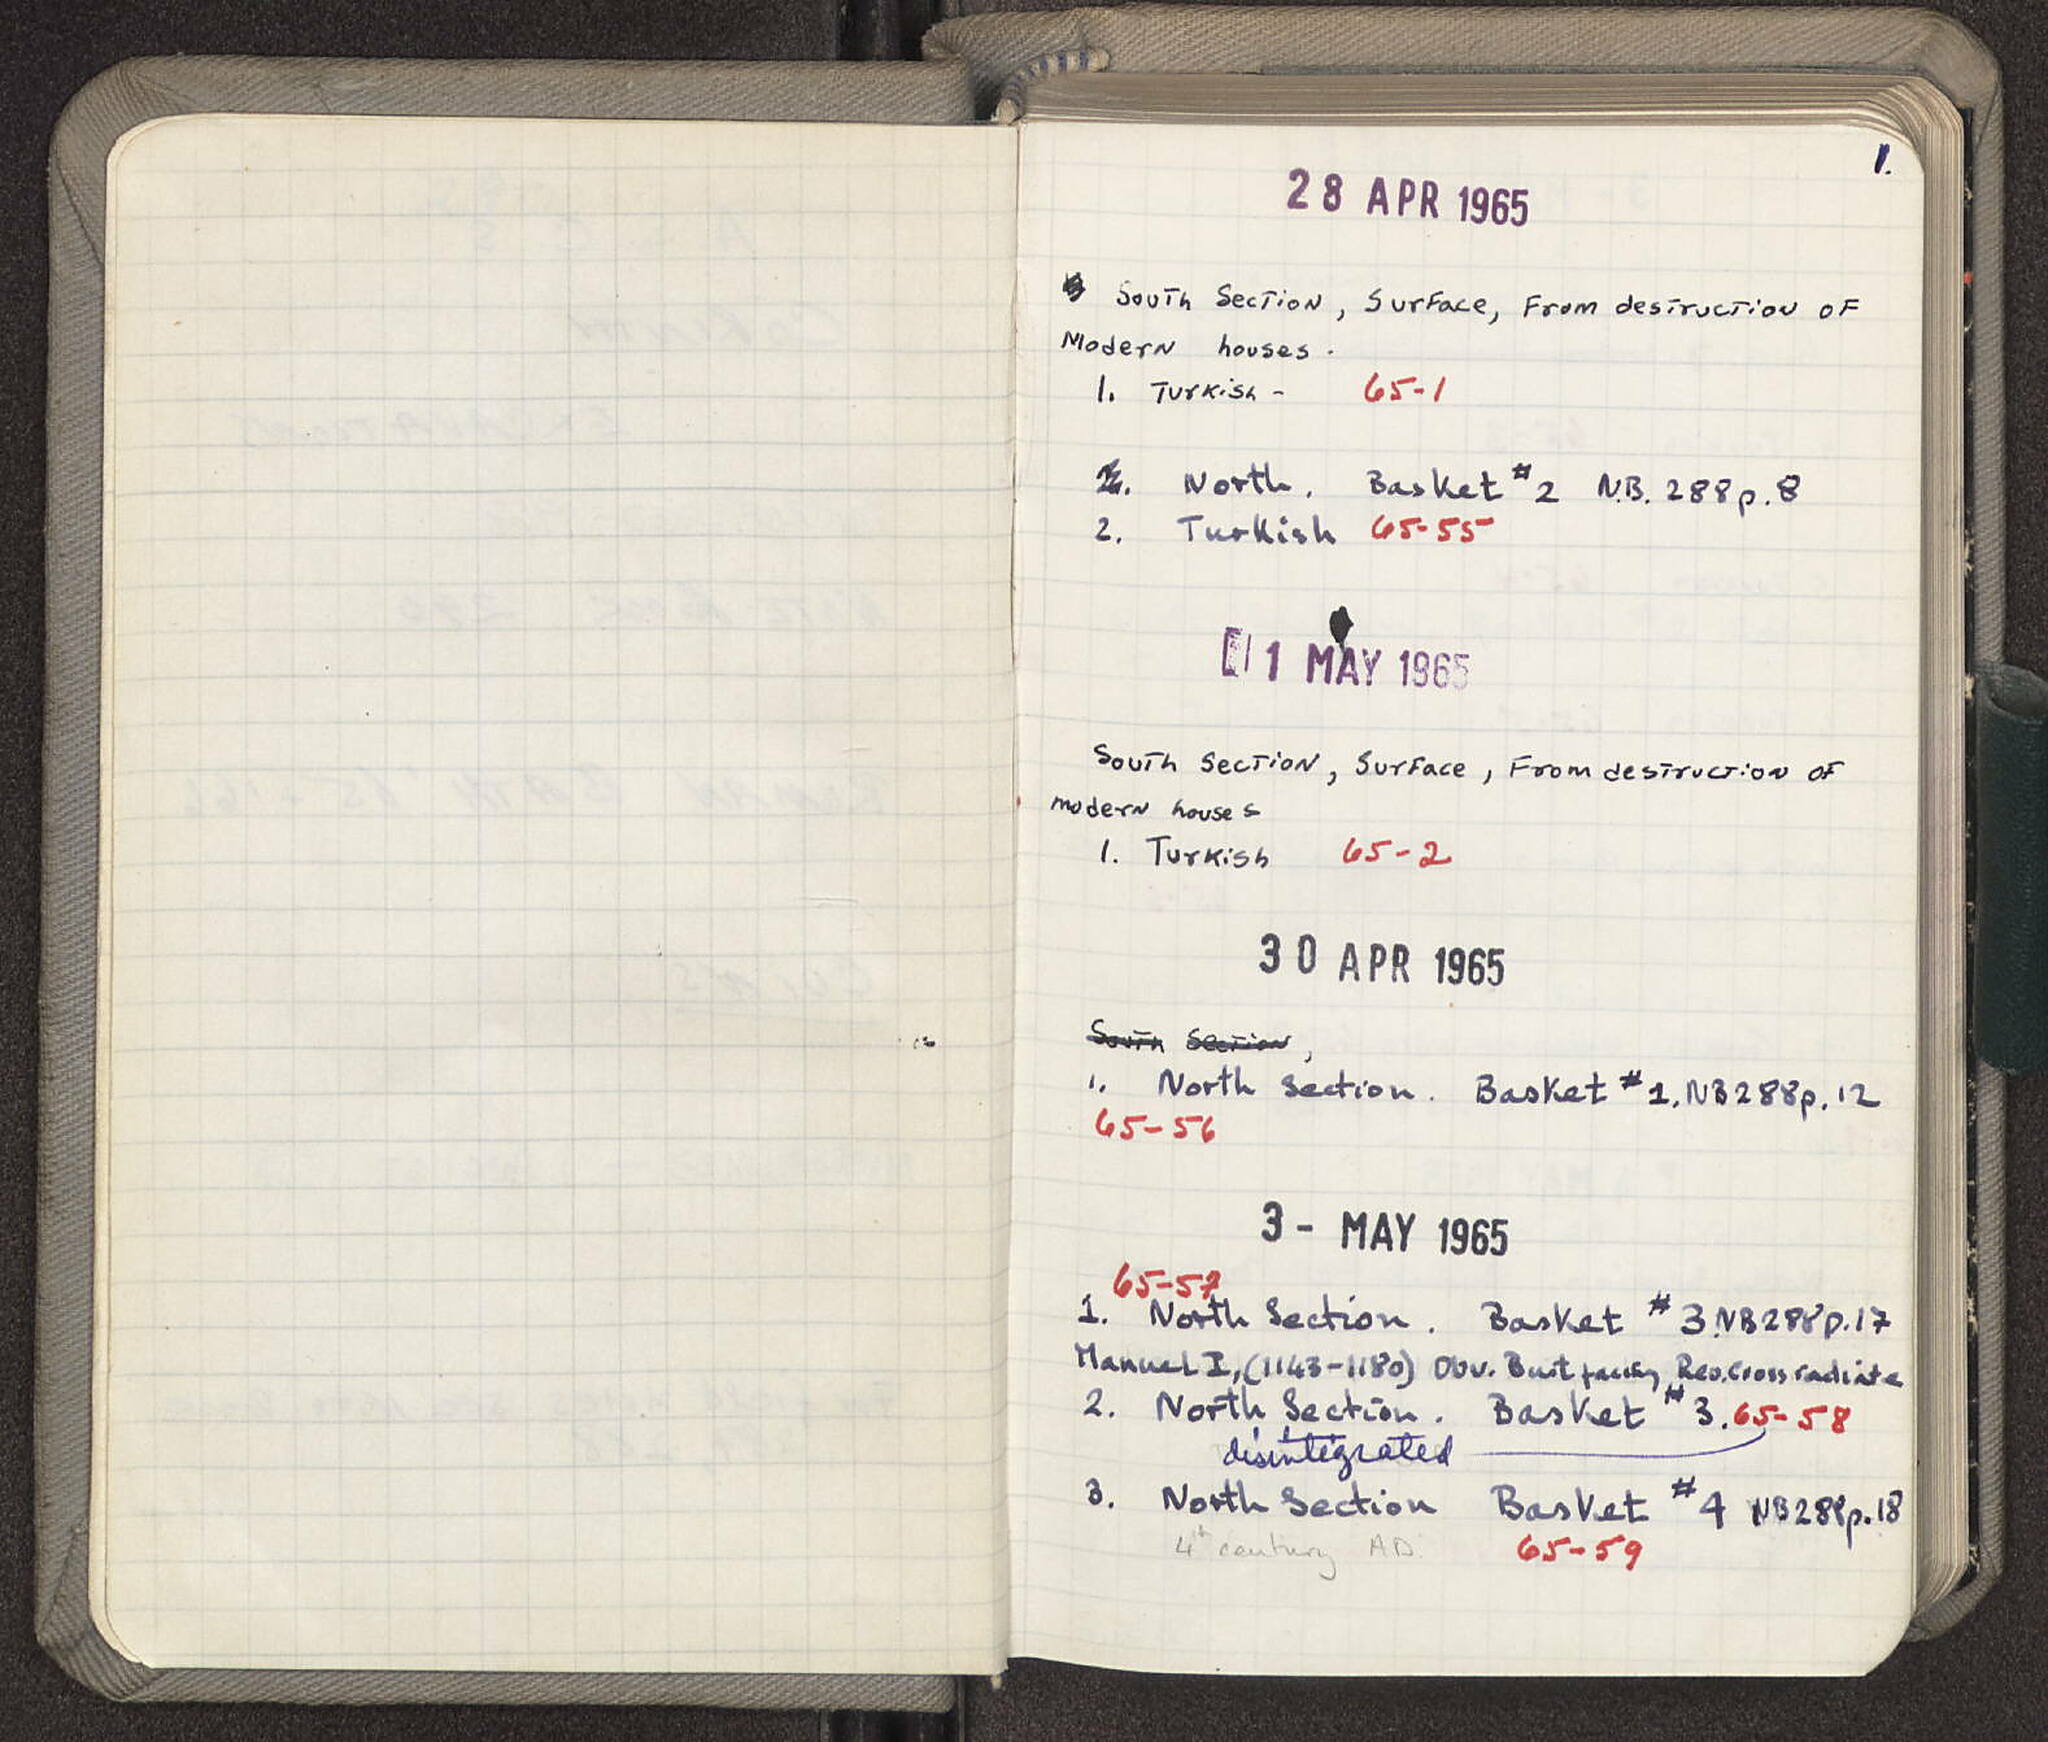 1.
28 APR 1965
South Section, Surface, From destruction of
Modern houses.
1. Turkish - 65-1
2. North. Basket #2 N.B. 288 p. 8
2. Turkish 65-55
1 MAY 1965
South Section, Surface, From destruction of
modern houses
1. Turkish 65-2
30 APR 1965
South Section,
1. North Section. Basket #1. NB288p. 12
65-56
3- MAY 1965
65-57
1. North Section. Basket #3. NB288p.17
Manuel I, (1143-1180) Obv. Bust facing Rev. Cross radiate
2. North Section. Basket #3. 65-58
disintegrated
3. North Section Basket #4 NB288p.18
4th century AD 65-59